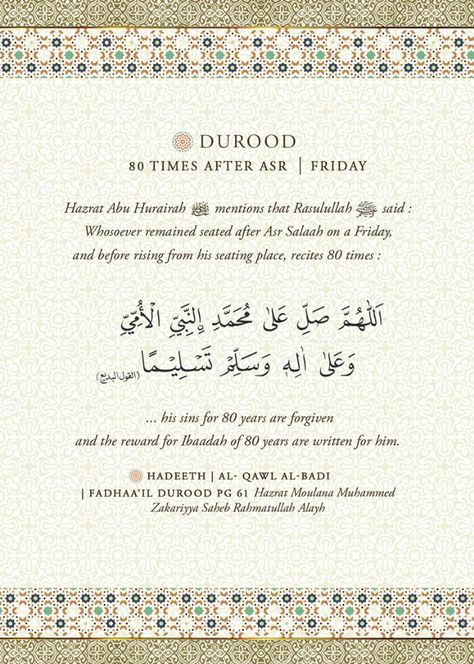 DUROOD
80 TIMES AFTER ASR | FRIDAY
Hazrat Abu Hurairah mentions that Rasulullah ﷺ said :
Whosoever remained seated after Asr Salaah on a Friday,
and before rising from his seating place, recites 80 times :
اَللّٰهُمَّ صَلِّ عَلٰى مُحَمَّدِ ࣙالنَّبِيِّ الْاُمِّيِّ
وَعَلٰى اٰلِهٖ وَسَلِّمْ تَسْلِيْمًا (القول البديع)
... his sins for 80 years are forgiven
and the reward for Ibaadah of 80 years are written for him.
HADEETH | AL- QAWL AL-BADI
| FADHAA'IL DUROOD PG 61 Hazrat Moulana Muhammed
Zakariyya Saheb Rahmatullah Alayh